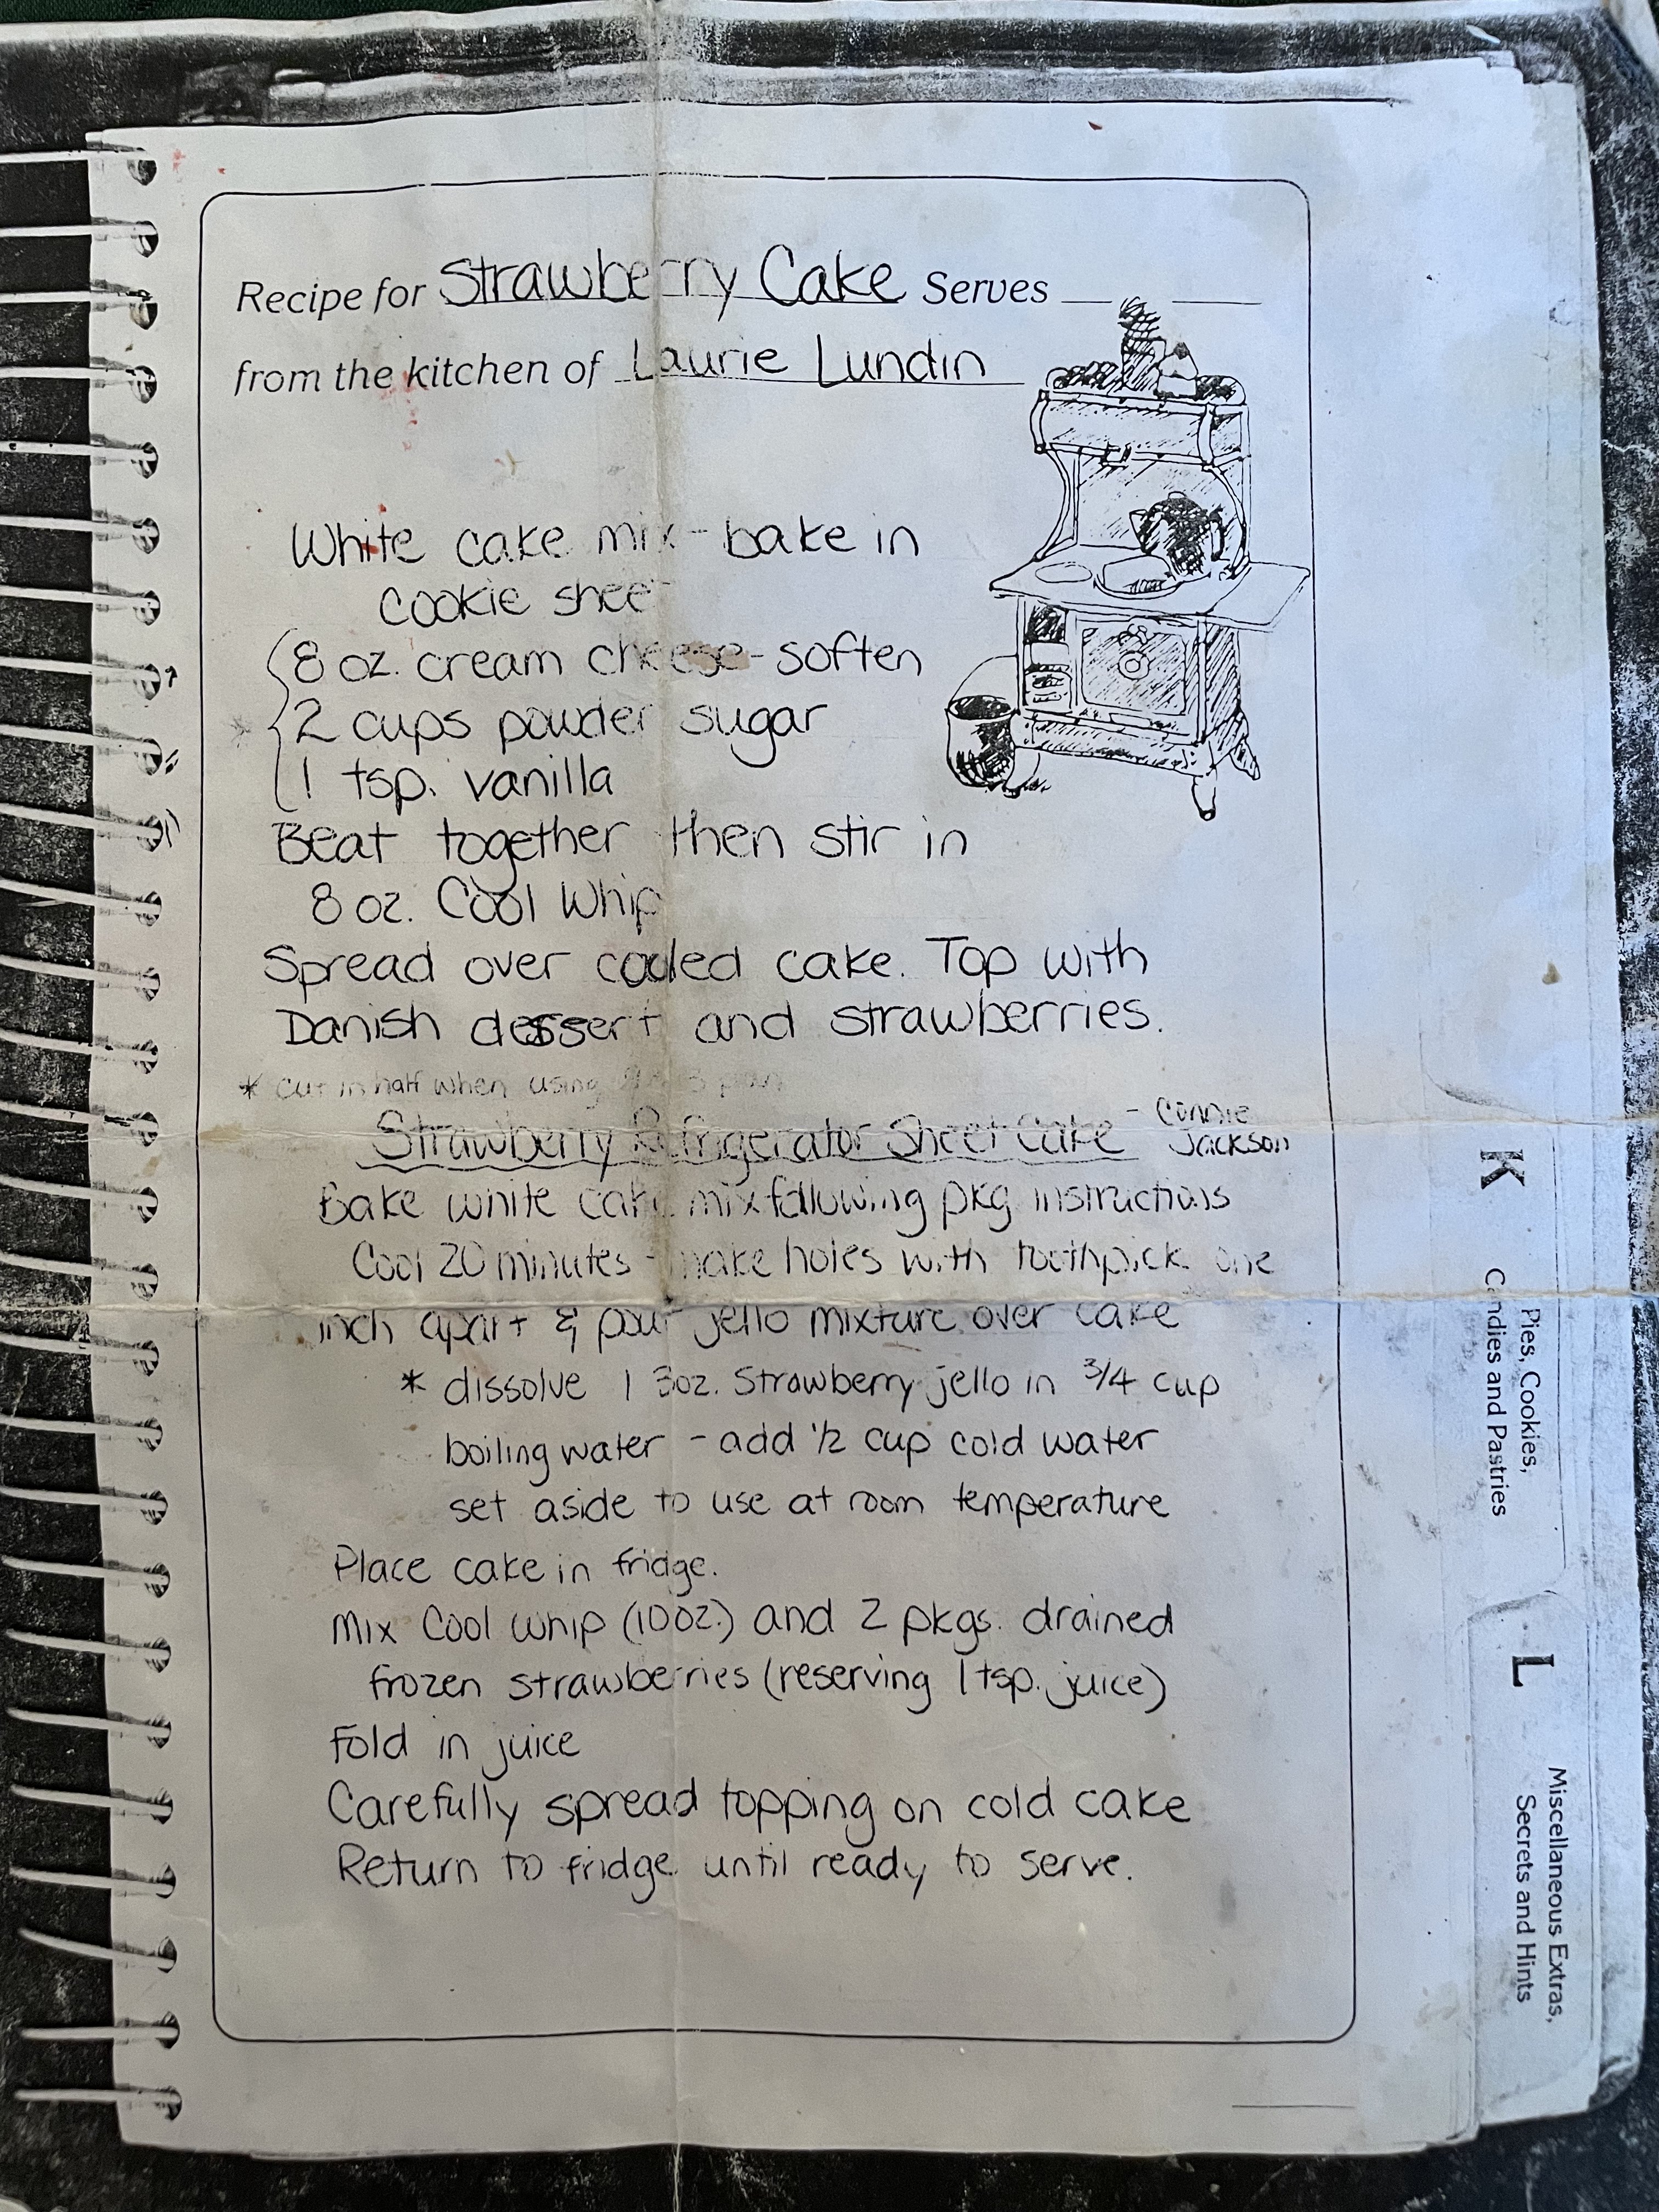 Recipe for Strawberry Cake Serves
from the kitchen of Laurie Lundin
White cake mix - bake in
cookie shee
8 oz. cream cheese - soften
* 2 cups powder sugar
1 tsp. vanilla
Beat together then stir in
8 oz. Cool Whip
Spread over cooled cake. Top with
Danish dessert and strawberries.
* cut in half when using pan
Strawberry Refrigerator Sheet Cake - Connie
Jackson
Bake white cake mix following pkg instructions
Cool 20 minutes - make holes with toothpick one
inch apart & pour jello mixture over cake
* dissolve 1 3oz. Strawberry jello in 3/4 cup
boiling water - add 1/2 cup cold water
set aside to use at room temperature
Place cake in fridge.
Mix Cool Whip (10oz.) and 2 pkgs. drained
frozen strawberries (reserving 1 tsp. juice)
Fold in juice
Carefully spread topping on cold cake
Return to fridge until ready to serve.
K
Pies, Cookies,
Candies and Pastries
L
Miscellaneous Extras,
Secrets and Hints